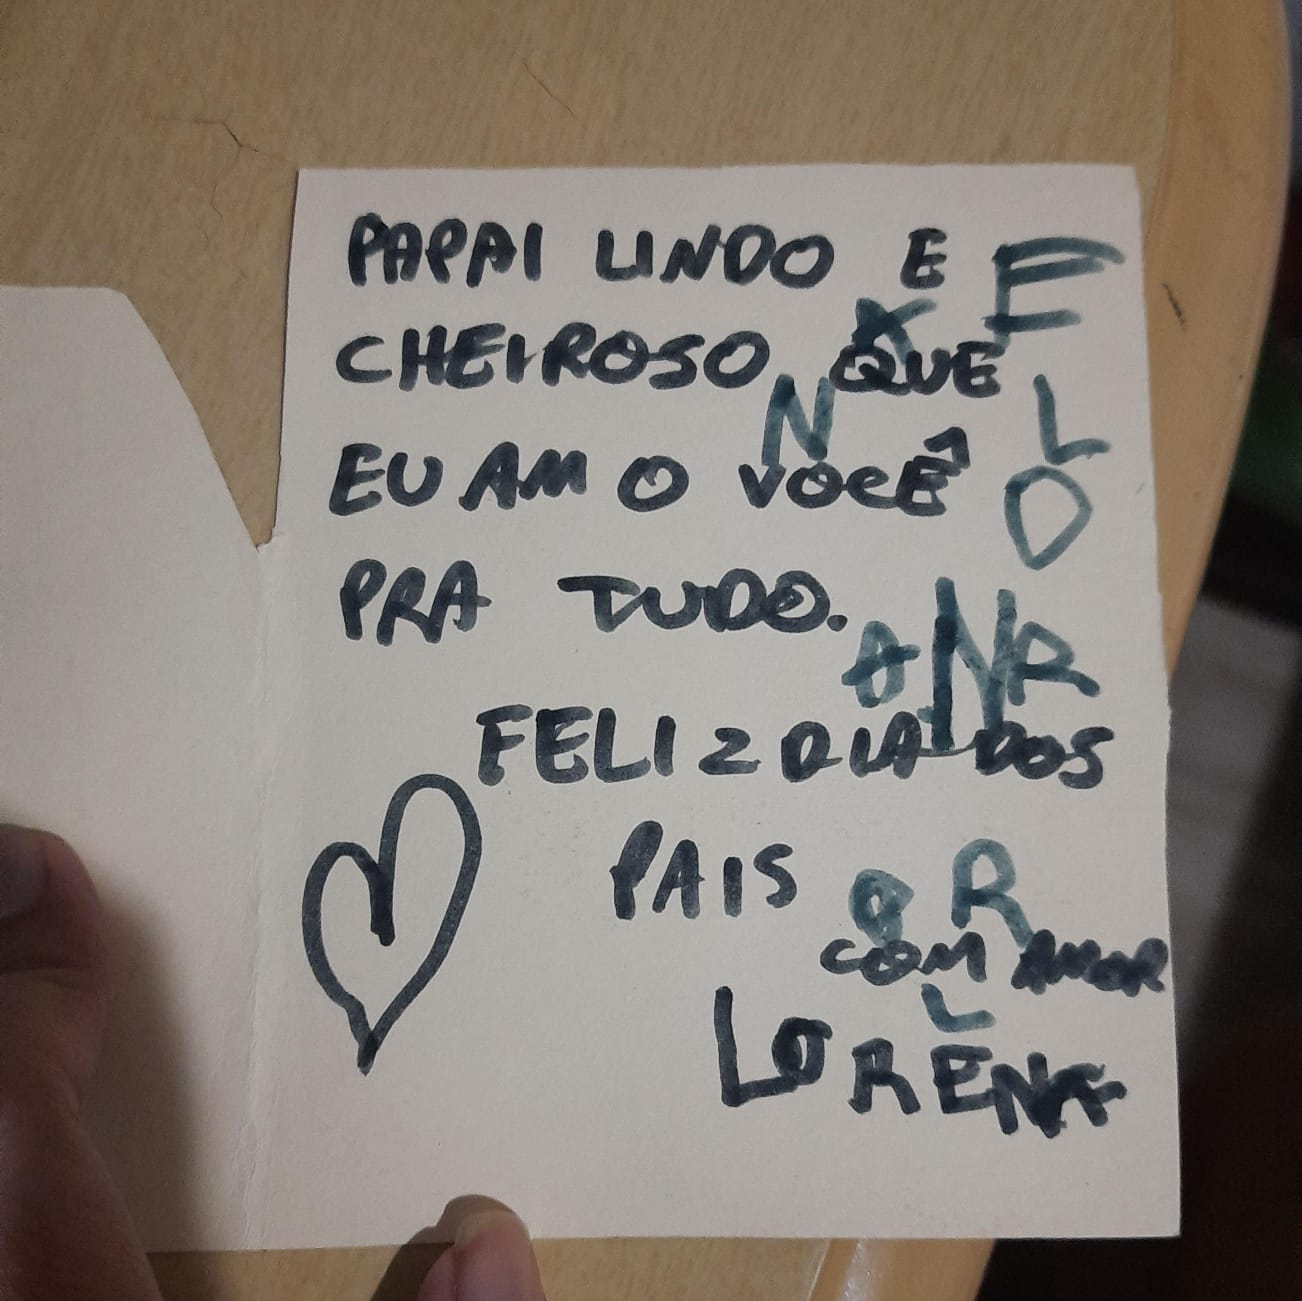 PAPAI LINDO E
CHEIROSO QUE
EU AMO VOCÊ
PRA TUDO.
FELIZ DIA DOS
PAIS
COM AMOR
LORENA
E
A
N
L
O
A N R
O R
L